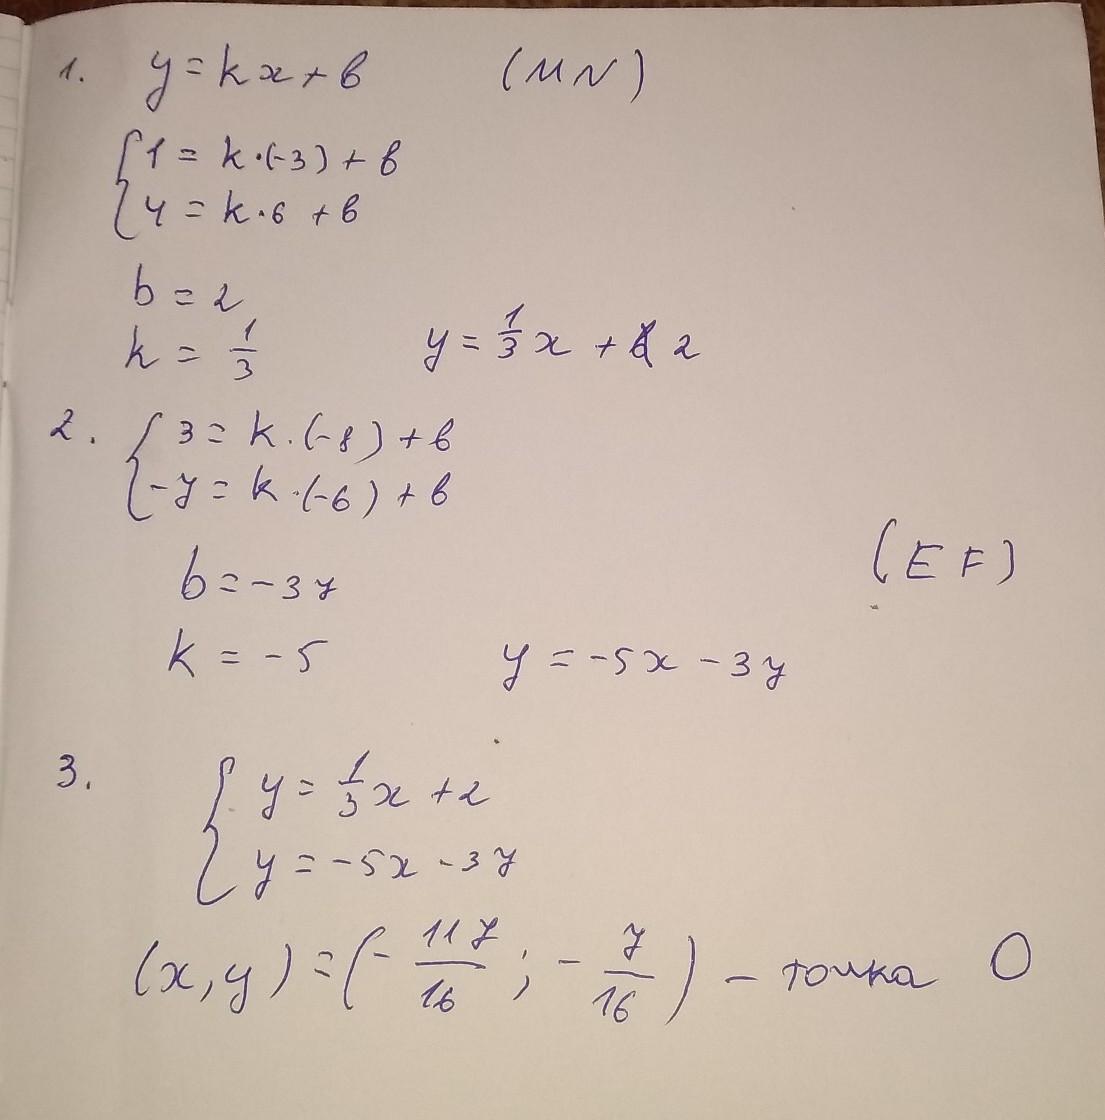 1. y = kx + b (MN)
{ 1 = k·(-3) + b
{ 4 = k·6 + b
b = 2
k = 1/3 y = 1/3 x + 2
2. { 3 = k·(-8) + b
{ -7 = k·(-6) + b
(EF)
b = -37
k = -5 y = -5x - 37
3. { y = 1/3 x + 2
{ y = -5x - 37
(x, y) = (- 117/16 ; - 7/16) - точка O